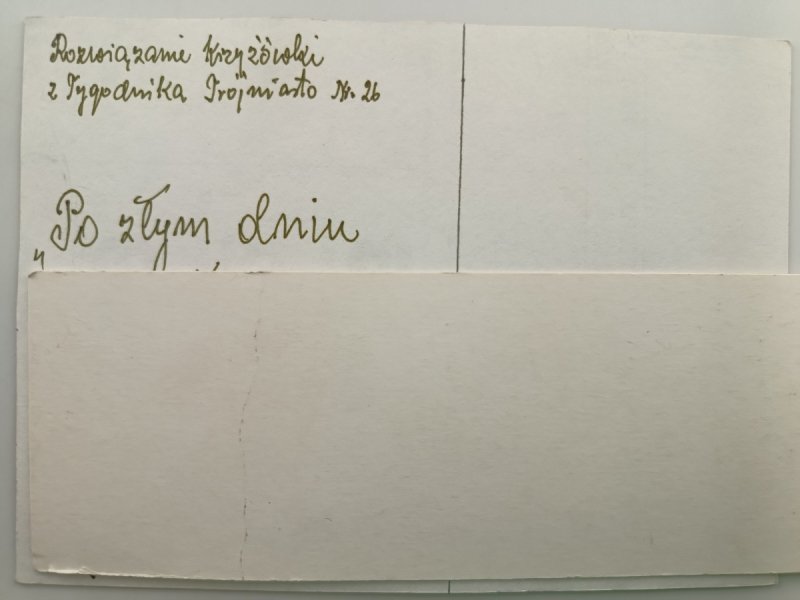 Rozwiązanie Krzyżówki
z Tygodnika Trójmiasto Nr. 26
"Po złym dniu